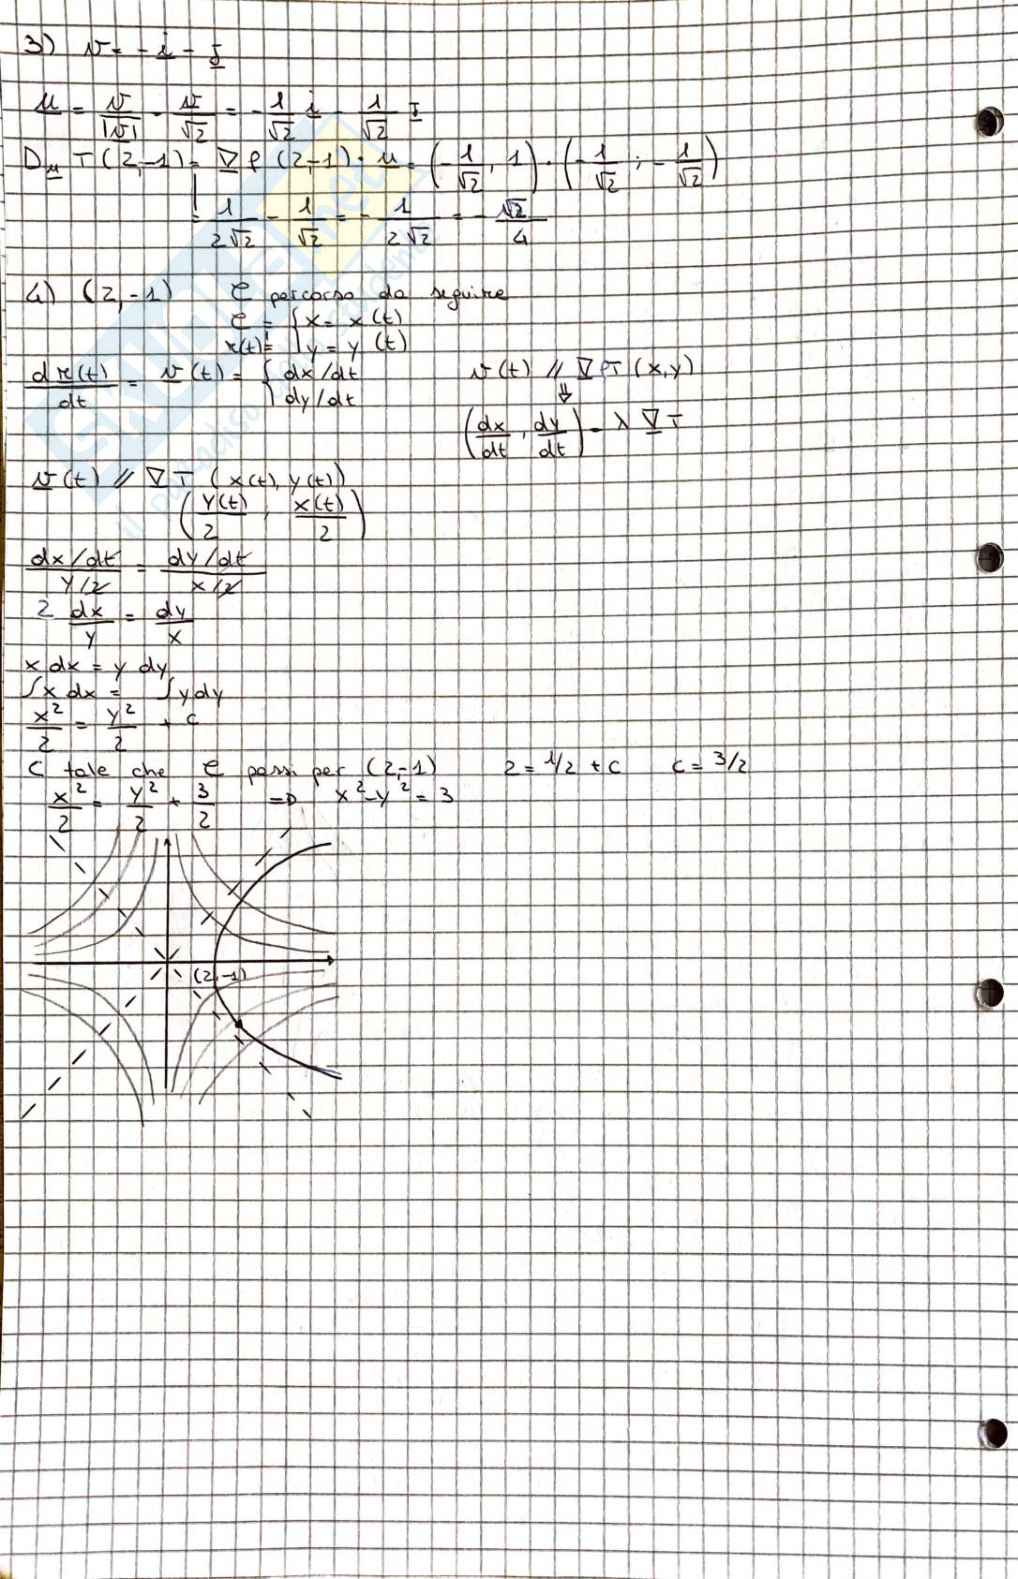 3) v = - i - j
u = v/|v| = v/√2 = - 1/√2 i - 1/√2 j
D_u T (2,-1) = ∇ f (2,-1) · u = (- 1/√2 , 1) · (- 1/√2 ; - 1/√2)
= 1/2√2 - 1/√2 = - 1/2√2 = - √2/4
4) (2,-1) C percorso da seguire
C = { x = x(t)
r(t) = { y = y(t)
dr(t)/dt = v(t) = { dx/dt
dy/dt
v(t) // ∇ T (x,y)
⇓
(dx/dt , dy/dt) = λ ∇ T
v(t) // ∇ T (x(t), y(t))
(y(t)/2 ; x(t)/2)
dx/dt / y/2 = dy/dt / x/2
2 dx/y = dy/x
x dx = y dy
∫x dx = ∫y dy
x²/2 = y²/2 + c
C tale che C passi per (2,-1) 2 = 1/2 + c c = 3/2
x²/2 = y²/2 + 3/2 => x² - y² = 3
(2,-1)